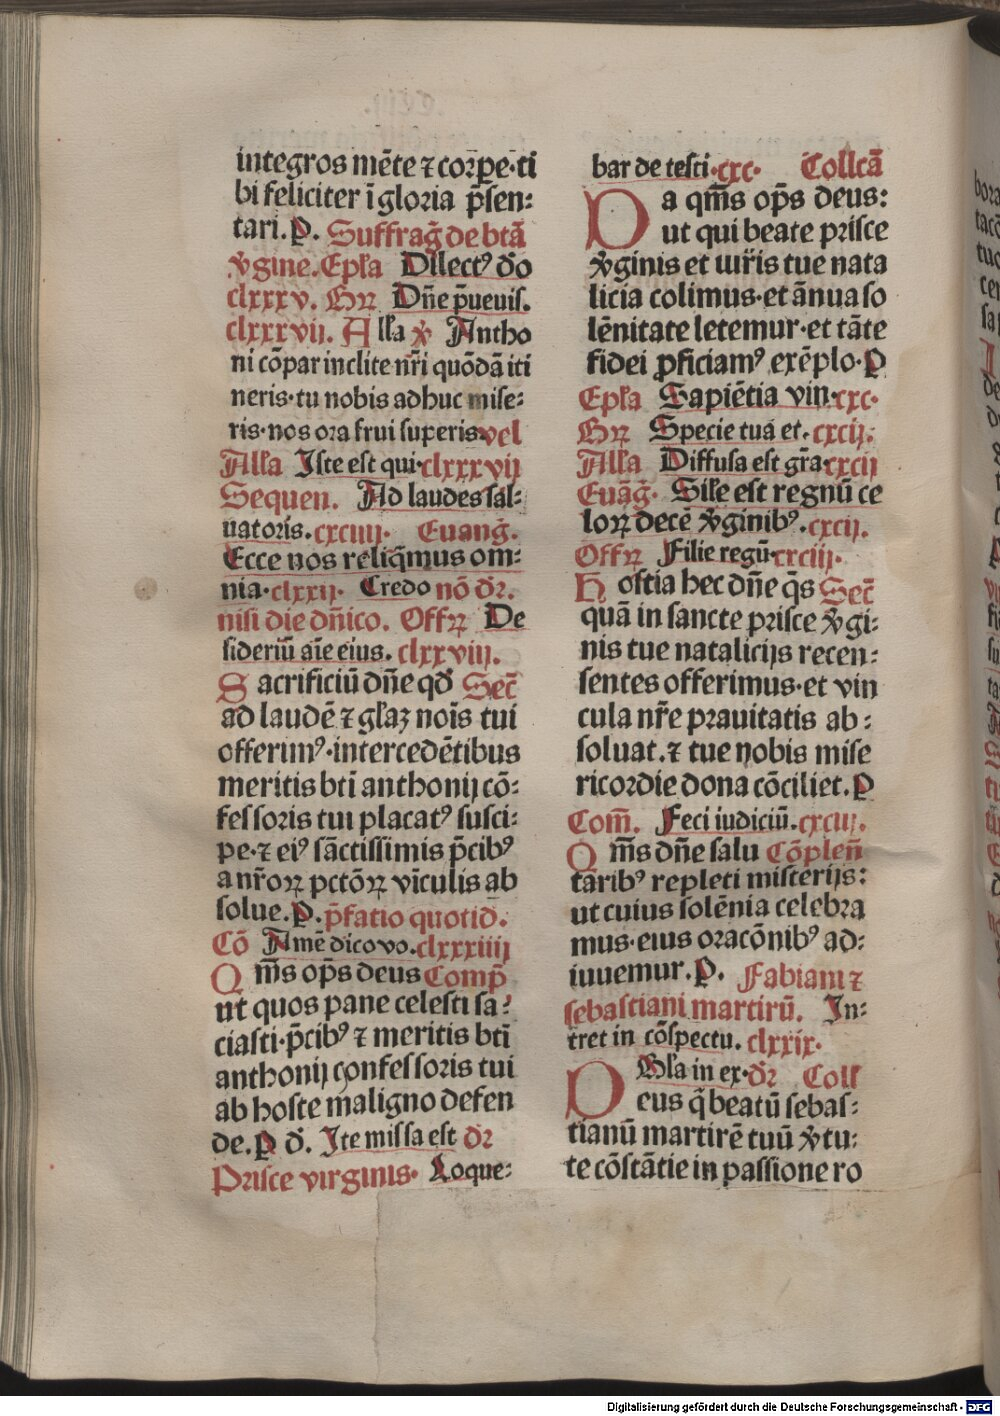 integros mẽte ⁊ coꝛꝑe·ti
bi feliciter ĩ gloria p̃sen:
tari.P. Suffrag̃ de btã
v̾gine.Ep̃la Dilect⁹ d̃o
clxxxv. Gꝛ Dñe p̃ueuis.
clxxxvij. Alła v̾ Antho
ni cõpar inclite nr̃i quõdã iti
neris·tu nobis adhuc mise:
ris·nos ora frui superis·vel
Alła Iste est qui·clxxxvij
Sequen. Ad laudes sal:
uatoris.cxciiij. Euang̃.
Ecce nos reliq̃mus om:
nia·clxxij. Credo nõ dr̃.
nisi die dñico. Offꝝ De
sideriũ aĩe eius. clxxviij.
Sacrificiũ dñe qd̃ Sec̃
ad laudẽ ⁊ głaꝫ noĩs tui
offerim⁹·intercedẽtibus
meritis btĩ anthonij cõ:
fessoris tui placat⁹ susci:
pe·⁊ ei⁹ sãctissimis p̃cib⁹
a nr̃oꝝ pctõꝝ vĩculis ab
solue.P. p̃fatio quotid̃.
Cõ Amẽ dico vo.clxxxiiij
Qm̃s op̃s deus Comp̃
ut quos pane celesti sa:
ciasti·p̃cib⁹ ⁊ meritis btĩ
anthonij confessoris tui
ab hoste maligno defen
de.P d̃. Ite missa est dr̃
Prisce virginis. Loque:
bar de testi·cxc. Collcã
Da qm̃s op̃s deus:
ut qui beate prisce
v̾ginis et mr̃is tue nata
licia colimus·et ãnua so
lẽnitate letemur·et tãte
fidei ꝓficiam⁹ exẽplo·P
Ep̃la Sapiẽtia vin.cxc.
Gꝛ Specie tua et.cxcij.
Alła Diffusa est gr̃a.cxcij
Euãg̃. Siłe est regnũ ce
loꝝ decẽ v̾ginib⁹.cxcij.
Offꝝ Filie regũ.cxciij.
Hostia hec dñe q̃s Sec̃
quã in sancte prisce v̾gi:
nis tue natalicijs recen:
sentes offerimus·et vin
cula nr̃e prauitatis ab:
soluat.⁊ tue nobis mise
ricordie dona cõciliet.P
Com̃. Feci iudiciũ.cxciij.
Qm̃s dñe salu Cõpleñ
tarib⁹ repleti misterijs:
ut cuius solẽnia celebra
mus·eius oracõnib⁹ ad:
iuuemur.P. Fabiani ⁊
sebastiani martirũ. In:
tret in cõspectu. clxxix.
Gła in ex·dr̃ Coll
Deus q̃ beatũ sebas:
tianũ martirẽ tuũ v̾tu:
te cõstãtie in passione ro
Digitalisierung gefördert durch die Deutsche Forschungsgemeinschaft - DFG